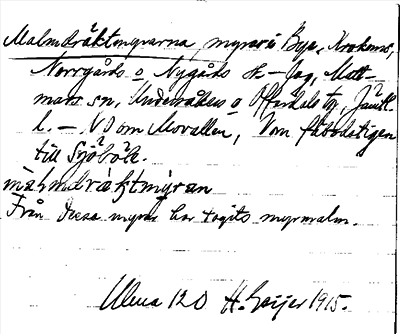 Malmdräktmyrarna, myrar i Bye, Krokoms,
Norrgårds o Nygårds
sn, Undersåkers o Offerdals tg, Jämtl.
l. – NO om Movallen, V om fäbodstigen
till Sjöböle.
màlmdràktmýran
Från dessa myrar har tagits myrmalm.
Ulma 120 H. Geijer 1915.